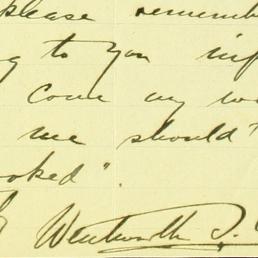 please remember
to you
come my
me should
ooked".
Wentworth D.